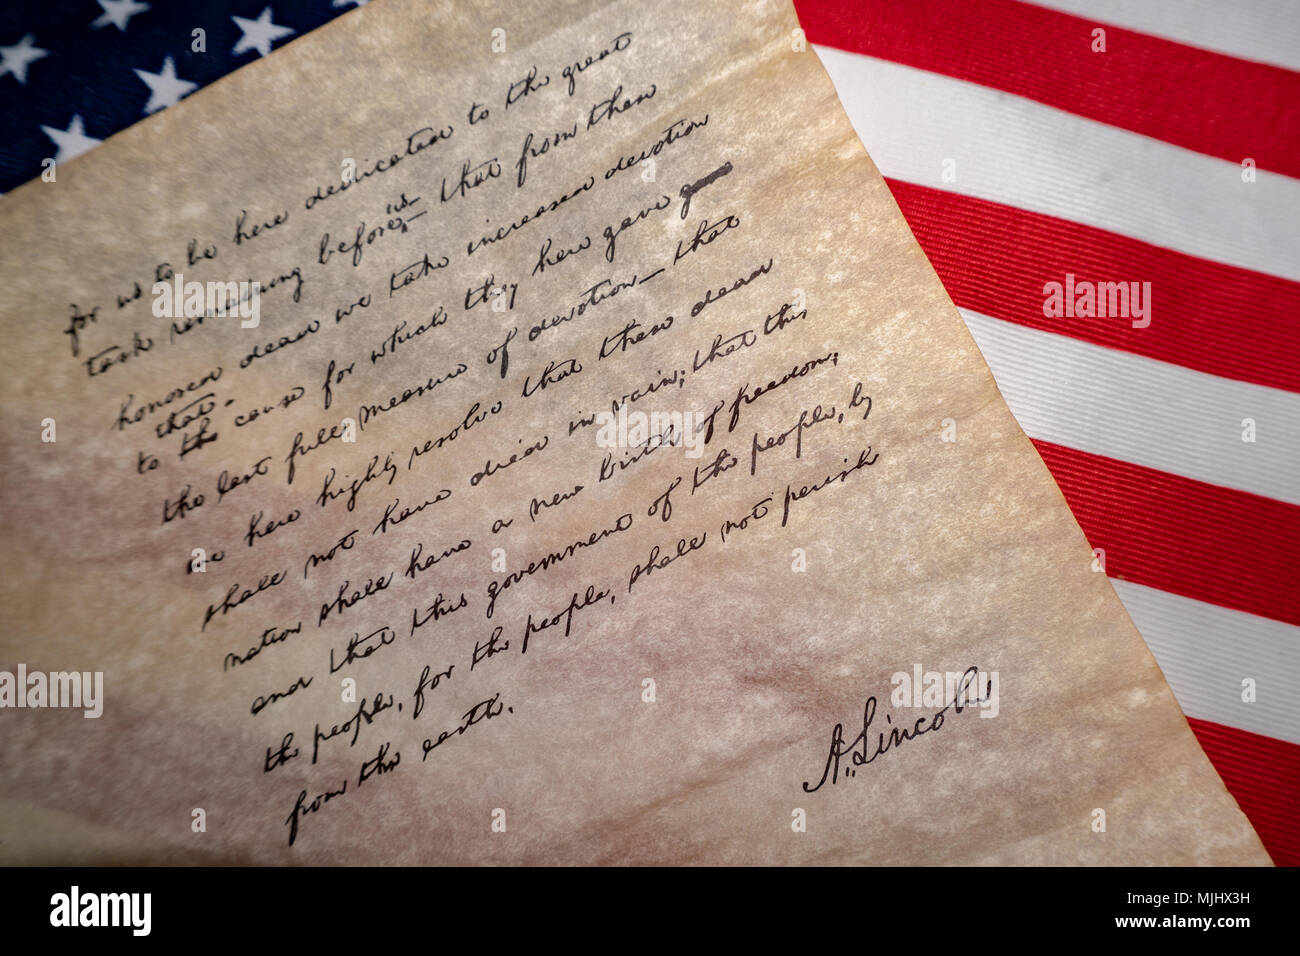 for us to be here dedicated to the great
task remaining before us— that from these
honored dead we take increased devotion
that
to the cause for which they here gave gave
the last full measure of devotion— that
we here highly resolve that these dead
shall not have died in vain; that this
nation shall have a new birth of freedom;
and that this government of the people, by
the people, for the people, shall not perish
from the earth.
A. Lincoln
alamy
alamy
alamy
Image ID: MJHX3H
www.alamy.com